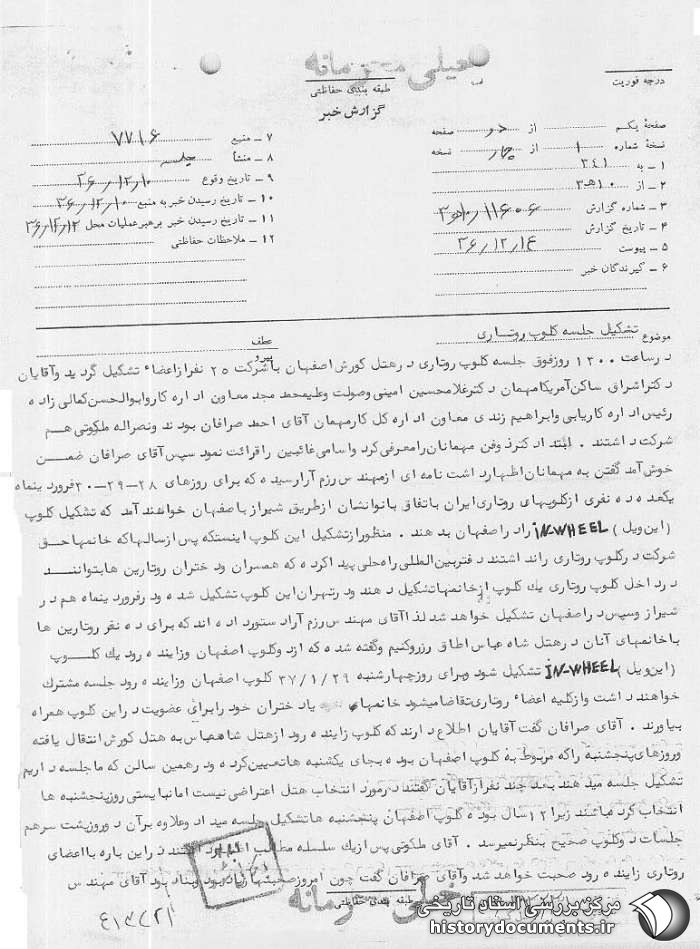 خیلی محرمانه
درجه فوریت
طبقه بندی حفاظتی
گزارش خبر
صفحهٔ یکم از دو صفحه
نسخهٔ شماره ۱ از چهار نسخه
۱ - به ۳۴۱
۲ - از ۱۰ هـ ۳
۳ - شماره گزارش ۱۱۶۰۶ / ۱۰ هـ ۳
۴ - تاریخ گزارش ۳۶/۱۲/۱۴
۵ - پیوست
۶ - گیرندگان خبر
۷ - منبع ۷۷۱۶
۸ - منشأ جلسه
۹ - تاریخ وقوع ۳۶/۱۲/۱۰
۱۰ - تاریخ رسیدن خبر به منبع ۳۶/۱۲/۱۰
۱۱ - تاریخ رسیدن خبر برهبر عملیات محل ۳۶/۱۲/۱۲
۱۲ - ملاحظات حفاظتی
موضوع تشکیل جلسه کلوپ روتاری
عطف
پیرو
در ساعت ۱۳۰۰ روز فوق جلسه کلوپ روتاری در هتل کورش اصفهان با شرکت ۲۵ نفر از اعضاء تشکیل گردید و آقایان
دکتر اشراقی ساکن آمریکا مهمان دکتر غلامحسین امینی وصولت و علیمحمد مجد معاون اداره کار و ابوالحسن کمالی زاده
رئیس اداره کاریابی و ابراهیم زندی معاون اداره کل کار مهمان آقای احمد صرافان بودند و نصراله ملکوتی هم
شرکت داشتند . ابتدا دکتر ذوفن مهمانان را معرفی کرد و اسامی غائبین را قرائت نمود سپس آقای صرافان ضمن
خوش آمد گفتن به مهمانان اظهار داشت نامه ای از مهندس رزم آرا رسیده که برای روزهای ۲۸-۲۹-۳۰ فروردینماه
یکعده ده نفری از کلوپهای روتاری ایران باتفاق بانوانشان از طریق شیراز باصفهان خواهند آمد که تشکیل کلوپ
(این ویل) IN-WHEEL را در اصفهان بدهند . منظور از تشکیل این کلوپ اینستکه پس از سالها که خانمها حق
شرکت در کلوپ روتاری را نداشتند دفتر بین المللی راه حلی پیدا کرده که همسران و دختران روتارین ها بتوانند
در داخل کلوپ روتاری یک کلوپ از خانمها تشکیل دهند و در تهران این کلوپ تشکیل شده و در فروردینماه هم در
شیراز و سپس در اصفهان تشکیل خواهد شد لذا آقای مهندس رزم آرا دستور داده اند که برای ده نفر روتارین ها
با خانمهای آنان در هتل شاه عباس اطاق رزرو کنیم و گفته شده که از دو کلوپ اصفهان و زاینده رود یک کلوپ
(این ویل) IN-WHEEL تشکیل شود و برای روز چهارشنبه ۳۷/۱/۲۹ کلوپ اصفهان و زاینده رود جلسه مشترک
خواهند داشت و از کلیه اعضاء روتاری تقاضا میشود خانمها یا دختران خود را برای عضویت در این کلوپ همراه
بیاورند . آقای صرافان گفت آقایان اطلاع دارند که کلوپ زاینده رود از هتل شاهعباس به هتل کورش انتقال یافته
و روزهای پنجشنبه را که مربوط به کلوپ اصفهان بوده بجای یکشنبه ها تعیین کرده و در همین سالن که ما جلسه داریم
تشکیل جلسه میدهند بعد چند نفر از آقایان گفتند در مورد انتخاب هتل اعتراضی نیست اما نبایستی روز پنجشنبه ها
انتخاب کرده باشند زیرا ۱۲ سال بوده کلوپ اصفهان پنجشنبه ها تشکیل جلسه میداد و علاوه بر آن دو روز پشت سر هم
جلسات دو کلوپ صحیح بنظر نمیرسد . آقای ملکوتی پس از یک سلسله مطالب در این باره با اعضای
روتاری زاینده رود صحبت خواهد شد و آقای صرافان گفت چون امروز آقای مهندس
خیلی محرمانه
طبقه بندی حفاظتی
مرکز بررسی اسناد تاریخی
historydocuments.ir